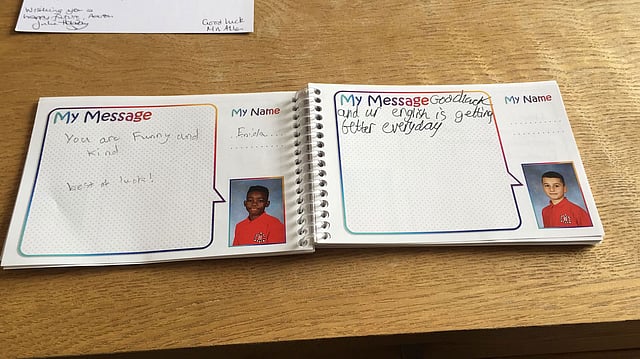 Wishing you a
happy future,
Good Luck
My Message
You are Funny and
kind
best of luck!
My Name
Eniola....
My Message
Goodluck
and ur english is getting
better everyday
My Name